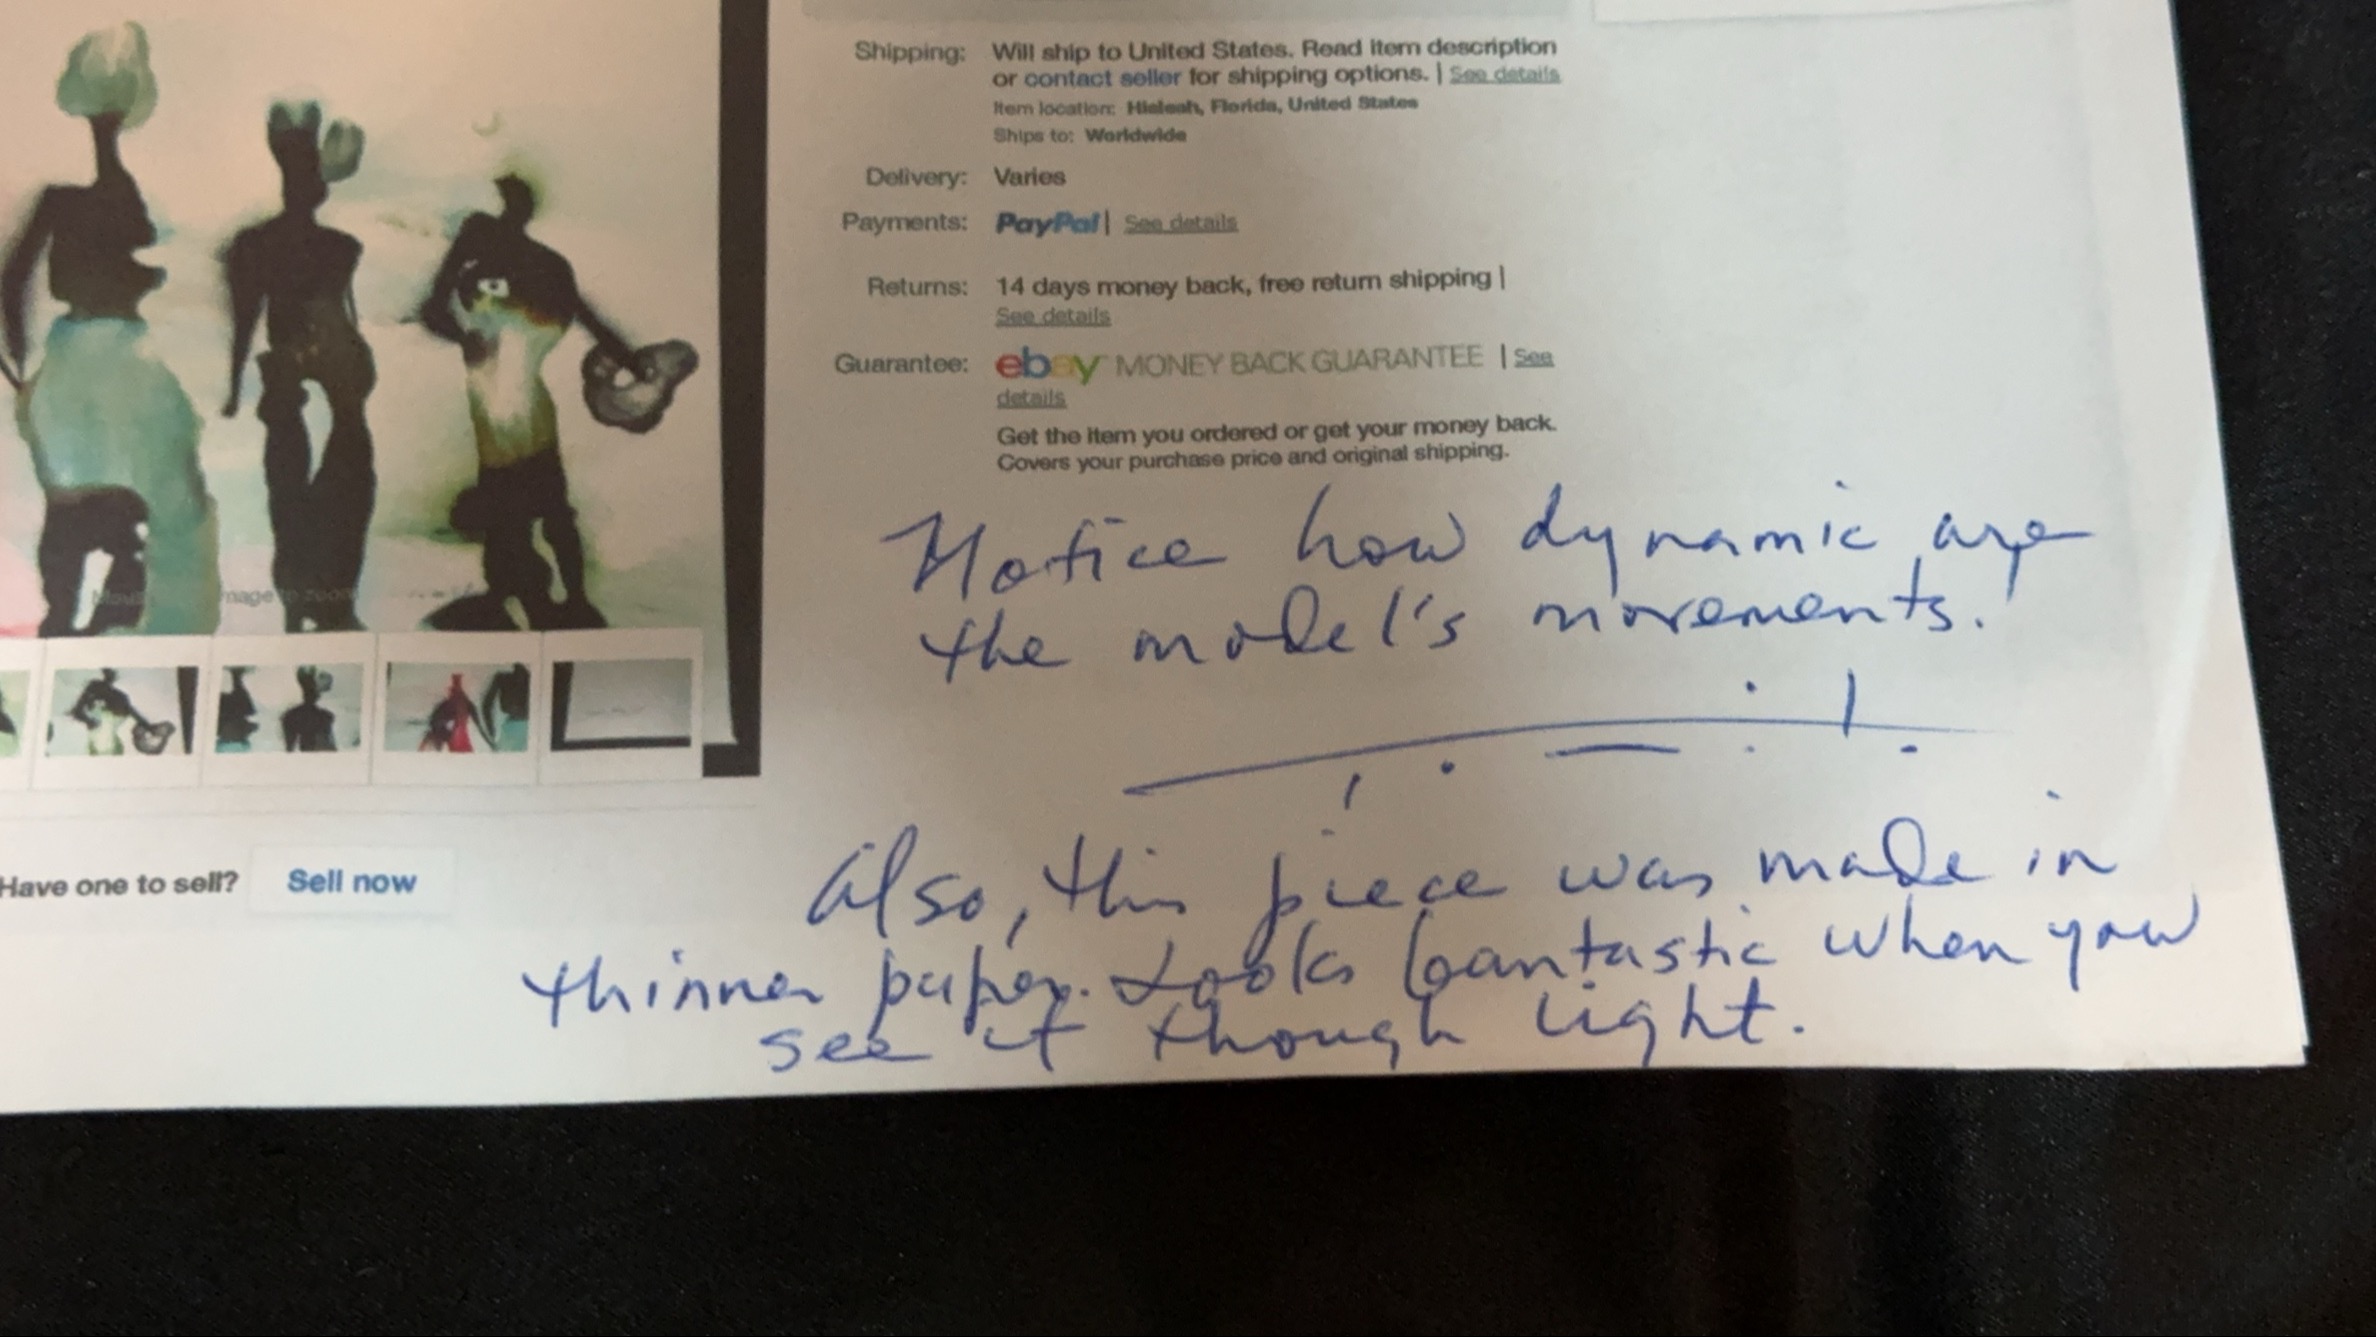 Shipping: Will ship to United States. Read item description
or contact seller for shipping options. | See details
Item location: Hialeah, Florida, United States
Ships to: Worldwide
Delivery: Varies
Payments: PayPal | See details
Returns: 14 days money back, free return shipping |
See details
Guarantee: ebay MONEY BACK GUARANTEE | See
details
Get the item you ordered or get your money back.
Covers your purchase price and original shipping.
Notice how dynamic are
the model's movements.
image to zoom
Have one to sell? Sell now
Also, this piece was made in
thinner paper. Looks fantastic when you
see it though light.